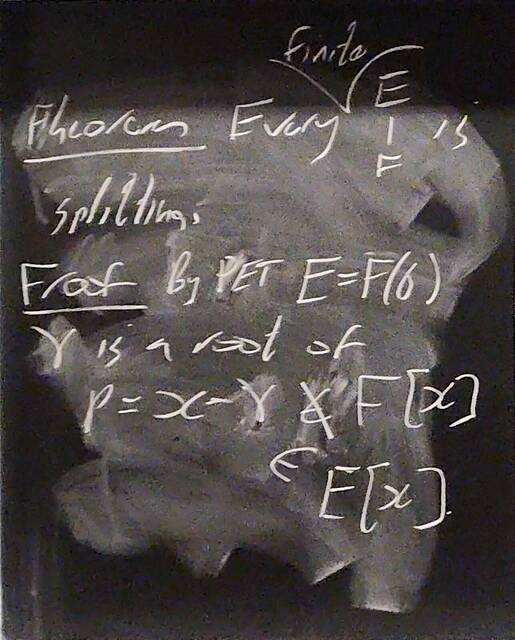 finite
Theorem Every E | F is
splitting.
Proof By PET E=F(γ)
γ is a root of
p = x - γ ∉ F[x]
∈ E[x].